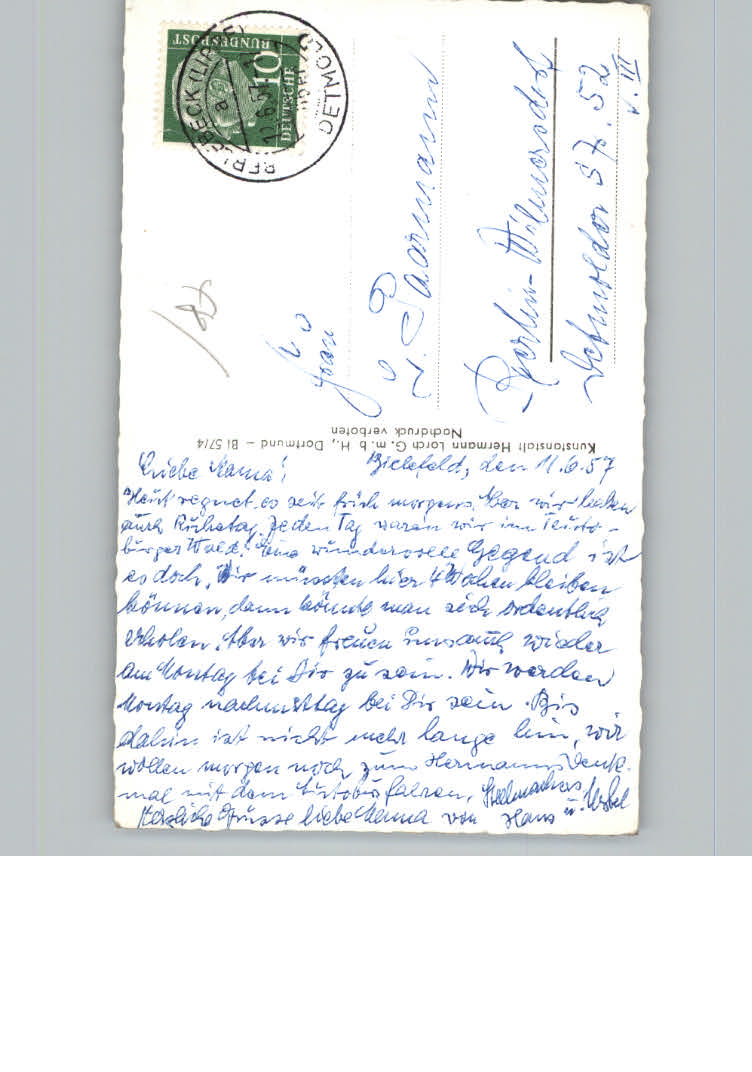 DEUTSCHE
BUNDESPOST
10
DETMOLD
Frau
Paarmann
Berlin-Wilmersdorf
Detmolder Str. 52
v. III
Kunstanstalt Hermann Lorch G. m. b. H., Dortmund – Bl 57/4
Nachdruck verboten
Bielefeld, den 11.6.57
Liebe Mama!
Heut regnet es seit früh morgens. Aber wir haben
auch Ruhetag. Jeden Tag waren wir im Teuto-
burger Wald. Eine wundervolle Gegend ist
es doch. Wir müssten hier 4 Wochen bleiben
können, dann könnte man sich ordentlich
erholen. Aber wir freuen uns auch wieder
am Montag bei Dir zu sein. Wir werden
Montag nachmittag bei Dir sein. Bis
dahin ist nicht mehr lange hin, wir
wollen morgen noch zum Hermannsdenk-
mal mit dem Autobus fahren.
Herzliche Grüsse liebe Mama von Hans u.